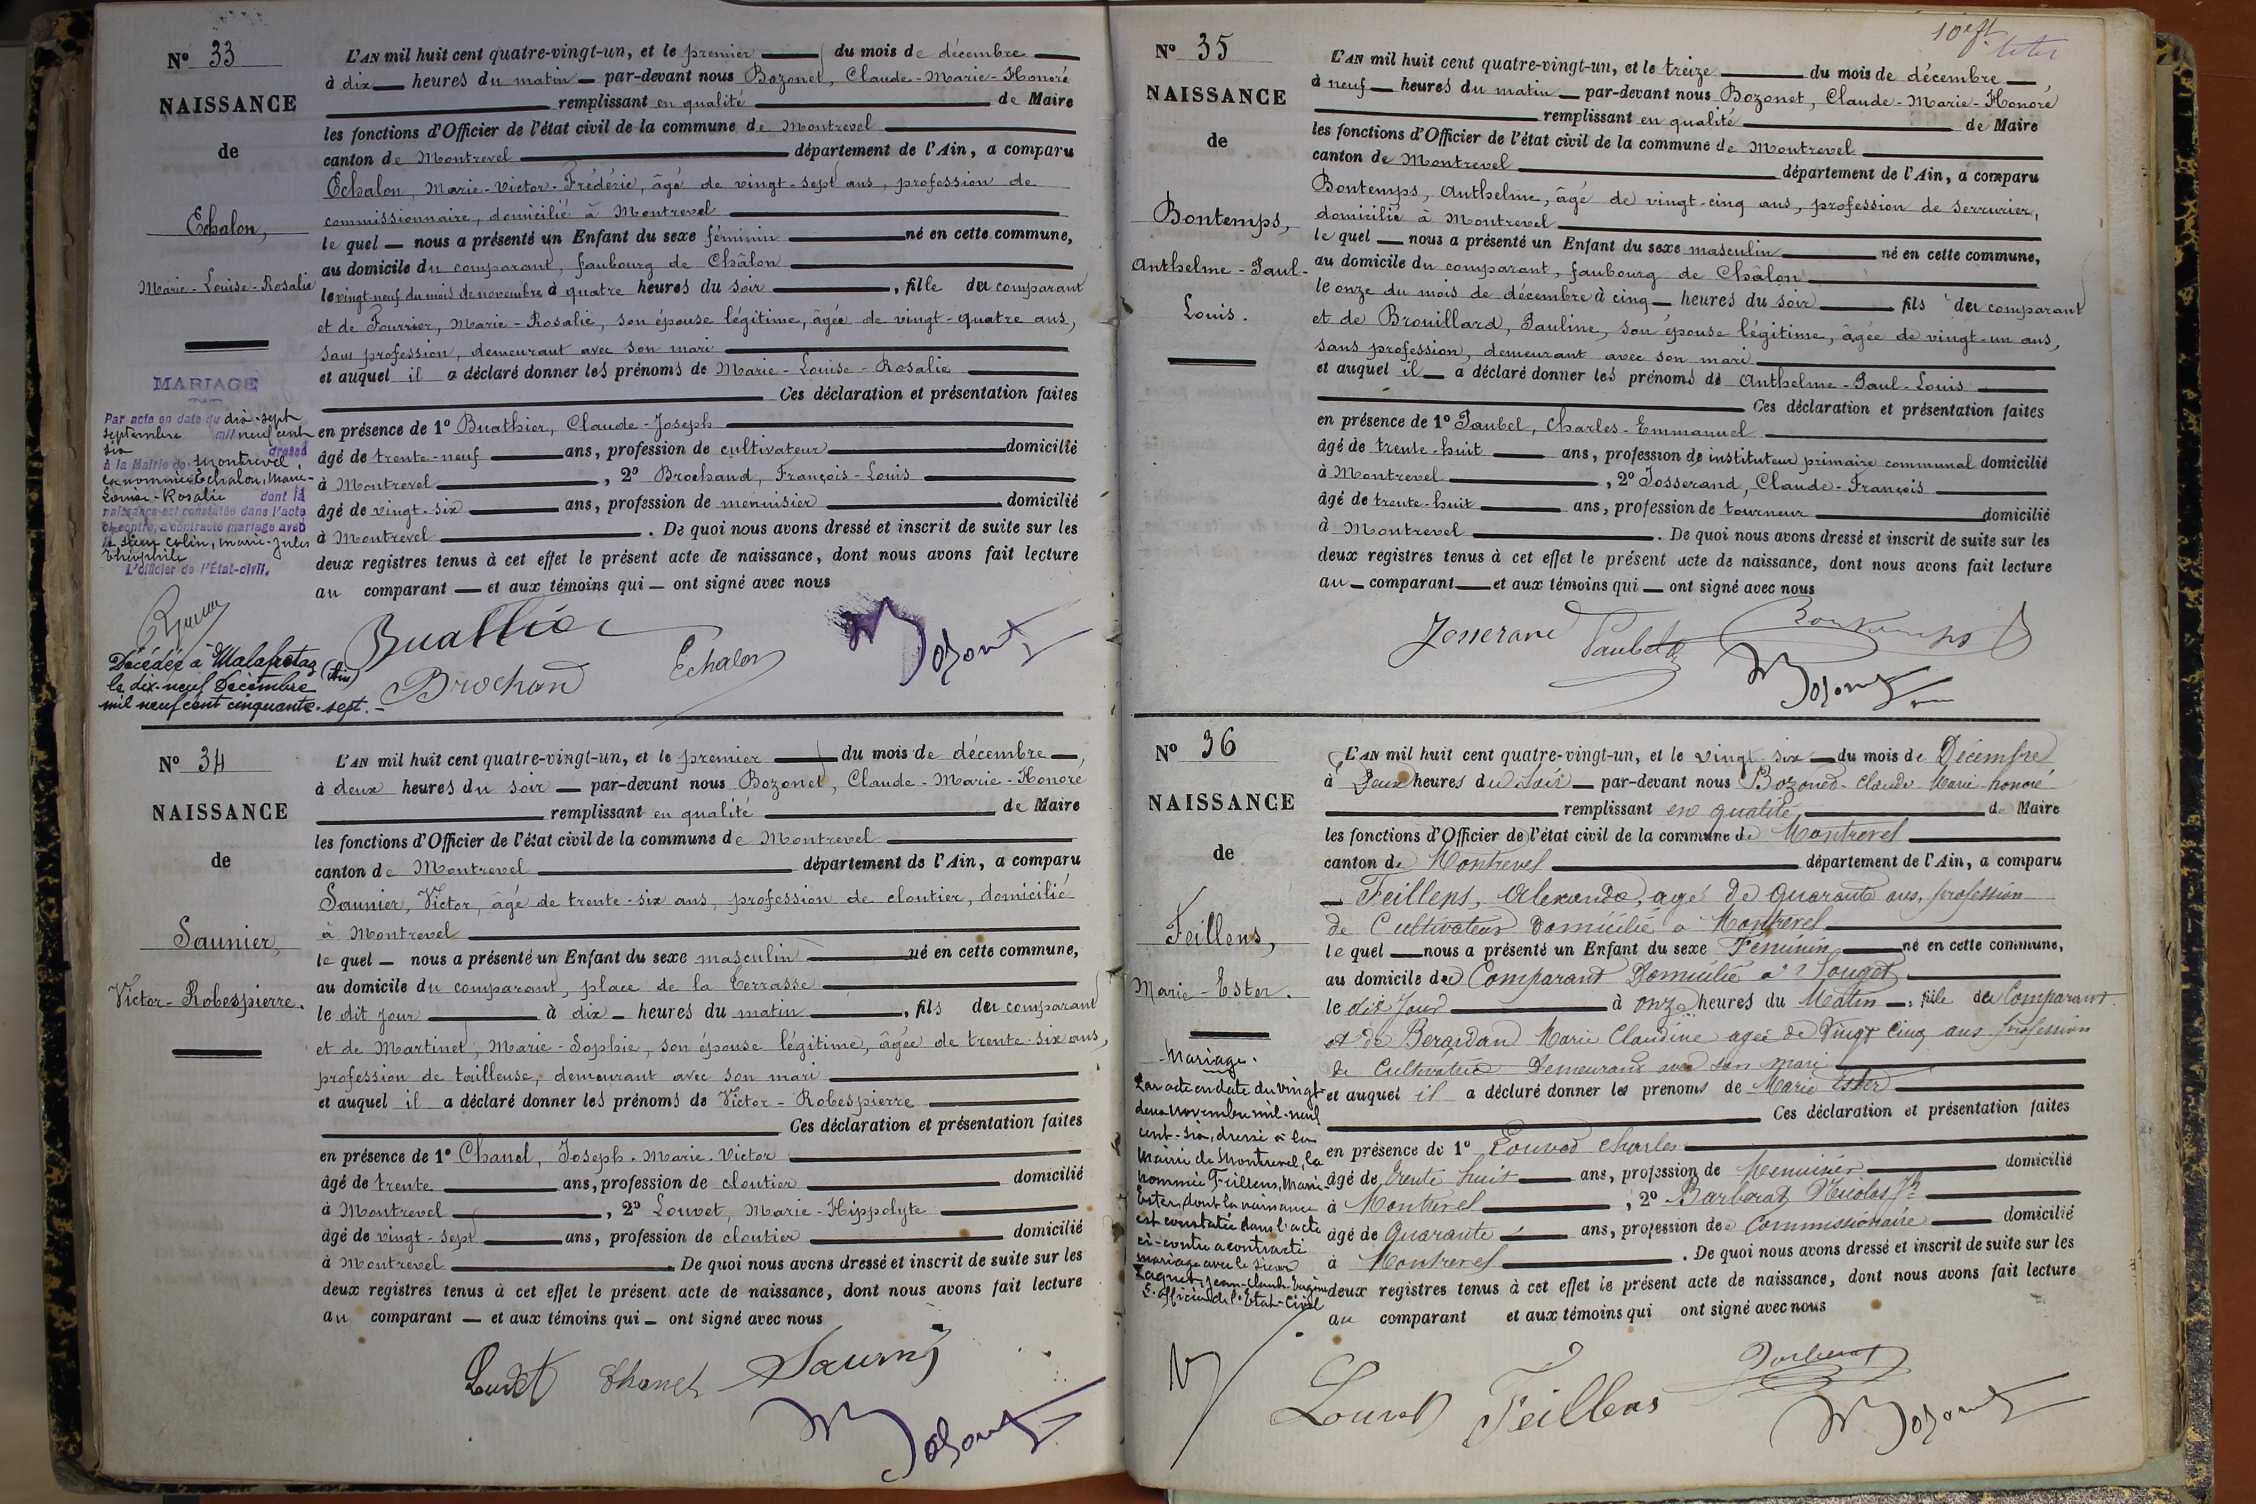 Nº 33
NAISSANCE
de
Echalon,
Marie-Louise-Rosalie
MARIAGE
Par acte en date du dix-sept
septembre mil neuf cent
six dressé
à la Mairie de Montrevel,
la nommée Echalon, Marie-
Louise-Rosalie dont la
naissance est constatée dans l'acte
ci-contre, a contracté mariage avec
le sieur Colin, Marie-Jules
Théophile
L'officier de l'État-civil,
Décédée à Malafretaz
(Ain)
le dix-neuf Décembre
mil neuf cent cinquante-sept.-
L'AN mil huit cent quatre-vingt-un, et le premier du mois de décembre
à dix heures du matin par-devant nous Bozonet, Claude-Marie-Honoré
remplissant en qualité de Maire
les fonctions d'Officier de l'état civil de la commune de Montrevel
canton de Montrevel département de l'Ain, a comparu
Echalon, Marie-Victor-Frédéric, âgé de vingt-sept ans, profession de
commissionnaire, domicilié à Montrevel
le quel nous a présenté un Enfant du sexe féminin né en cette commune,
au domicile du comparant, faubourg de Châlon
le vingt neuf du mois de novembre à quatre heures du soir, fille du comparant
et de Fourrier, Marie-Rosalie, son épouse légitime, âgée de vingt-quatre ans,
sans profession, demeurant avec son mari
et auquel il a déclaré donner les prénoms de Marie-Louise-Rosalie
Ces déclaration et présentation faites
en présence de 1º Buathier, Claude-Joseph
âgé de trente-neuf ans, profession de cultivateur domicilié
à Montrevel, 2º Brochand, François-Louis
âgé de vingt-six ans, profession de menuisier domicilié
à Montrevel. De quoi nous avons dressé et inscrit de suite sur les
deux registres tenus à cet effet le présent acte de naissance, dont nous avons fait lecture
au comparant et aux témoins qui ont signé avec nous
Buathier
Brochand
Echalon
Bozonet
Nº 34
NAISSANCE
de
Saunier,
Victor-Robespierre.
L'AN mil huit cent quatre-vingt-un, et le premier du mois de décembre,
à deux heures du soir par-devant nous Bozonet, Claude-Marie-Honoré
remplissant en qualité de Maire
les fonctions d'Officier de l'état civil de la commune de Montrevel
canton de Montrevel département de l'Ain, a comparu
Saunier, Victor, âgé de trente-six ans, profession de cloutier, domicilié
à Montrevel
le quel nous a présenté un Enfant du sexe masculin né en cette commune,
au domicile du comparant, place de la Terrasse
le dit jour à dix heures du matin, fils du comparant
et de Martinet, Marie-Sophie, son épouse légitime, âgée de trente-six ans,
profession de tailleuse, demeurant avec son mari
et auquel il a déclaré donner les prénoms de Victor-Robespierre
Ces déclaration et présentation faites
en présence de 1º Chanel, Joseph-Marie-Victor
âgé de trente ans, profession de cloutier domicilié
à Montrevel, 2º Louvet, Marie-Hippolyte
âgé de vingt-sept ans, profession de cloutier domicilié
à Montrevel De quoi nous avons dressé et inscrit de suite sur les
deux registres tenus à cet effet le présent acte de naissance, dont nous avons fait lecture
au comparant et aux témoins qui ont signé avec nous
Louvet Chanel Saunier
Bozonet
Nº 35
NAISSANCE
de
Bontemps,
Anthelme-Paul-
Louis.
L'AN mil huit cent quatre-vingt-un, et le treize du mois de décembre
à neuf heures du matin par-devant nous Bozonet, Claude-Marie-Honoré
remplissant en qualité de Maire
les fonctions d'Officier de l'état civil de la commune de Montrevel
canton de Montrevel département de l'Ain, a comparu
Bontemps, Anthelme, âgé de vingt-cinq ans, profession de serrurier,
domicilié à Montrevel
le quel nous a présenté un Enfant du sexe masculin né en cette commune,
au domicile du comparant, faubourg de Châlon
le onze du mois de décembre à cinq heures du soir fils du comparant
et de Brouillard, Pauline, son épouse légitime, âgée de vingt-un ans,
sans profession, demeurant avec son mari
et auquel il a déclaré donner les prénoms de Anthelme-Paul-Louis
Ces déclaration et présentation faites
en présence de 1º Paubel, Charles-Emmanuel
âgé de trente-huit ans, profession de instituteur primaire communal domicilié
à Montrevel, 2º Josserand, Claude-François
âgé de trente-huit ans, profession de tourneur domicilié
à Montrevel. De quoi nous avons dressé et inscrit de suite sur les
deux registres tenus à cet effet le présent acte de naissance, dont nous avons fait lecture
au comparant et aux témoins qui ont signé avec nous
Josserand Paubel Bontemps
Bozonet
Nº 36
NAISSANCE
de
Feillens,
Marie-Ester.
Mariage.
Par acte en date du vingt-
deux novembre mil-neuf
cent-six, dressé à la
Mairie de Montrevel, la
nommée Feillens, Marie-
Ester, dont la naissance
est constatée dans l'acte
ci-contre a contracté
mariage avec le sieur
Jean-Claude-Eugène
L'officier de l'Etat-Civil
L'AN mil huit cent quatre-vingt-un, et le vingt six du mois de Décembre
à Deux heures du soir par-devant nous Bozonet Claude Marie honoré
remplissant en qualité de Maire
les fonctions d'Officier de l'état civil de la commune de Montrevel
canton de Montrevel département de l'Ain, a comparu
Feillens, Alexandre, agé de Quarante ans, profession
de Cultivateur Domicilié a Montrevel
le quel nous a présenté un Enfant du sexe Féminin né en cette commune,
au domicile du Comparant Domicilié a
le dit Jour à onze heures du Matin, fille du Comparant
et de Marie Claudine agée de Vingt Cinq ans profession
de Cultivatrice Demeurant avec son mari
et auquel il a déclaré donner les prénoms de Marie Ester
Ces déclaration et présentation faites
en présence de 1º Louvet Charles
âgé de trente huit ans, profession de Menuisier domicilié
à Montrevel, 2º Barberat Nicolas
âgé de Quarante ans, profession de Commissionaire domicilié
à Montrevel. De quoi nous avons dressé et inscrit de suite sur les
deux registres tenus à cet effet le présent acte de naissance, dont nous avons fait lecture
au comparant et aux témoins qui ont signé avec nous
Louvet Feillens Barberat
Bozonet